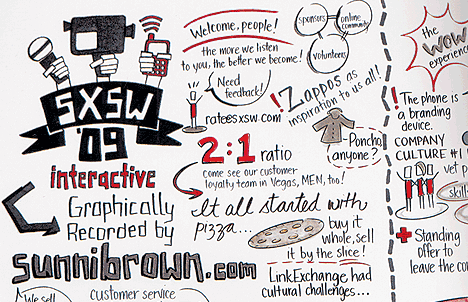 SXSW
'09
interactive
Graphically
Recorded by
sunnibrown.com
We sell
customer service
Welcome, people!
the more we listen
to you, the better we become!
Need
feedback!
rate@sxsw.com
sponsors
online
community
volunteers
! Zappos as
inspiration to us all!
2:1 ratio
come see our customer
loyalty team in Vegas, MEN, too!
Poncho,
anyone?
It all started with
pizza...
buy it
whole, sell
it by the slice!
LinkExchange had
cultural challenges...
the
WOW
experience
! The phone is
a branding
device.
COMPANY
CULTURE #1
vet p
skill
+ Standing
offer to
leave the co